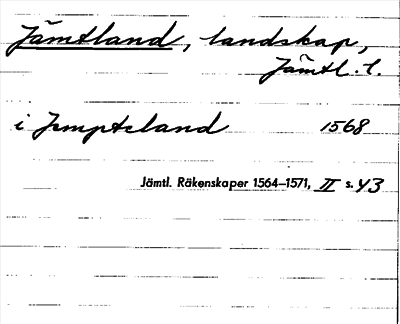 Jämtland, landskap,
Jämtl. l.
i Jempteland 1568
Jämtl. Räkenskaper 1564–1571, II s. 43